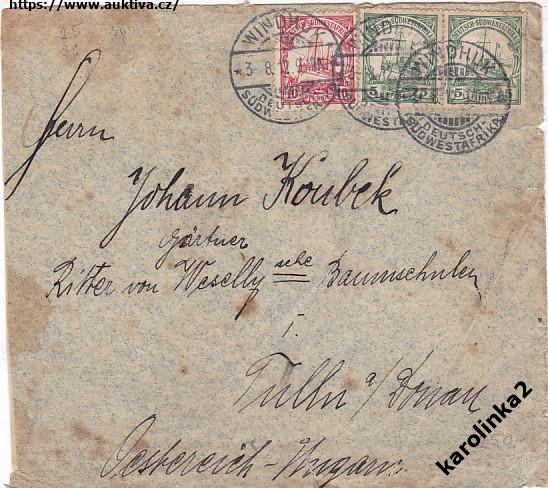 https://www.auktiva.cz/
WINDHUK
DEUTSCH-SÜDWESTAFRIKA
DEUTSCH-SÜDWESTAFRIKA
WINDHUK
DEUTSCH-SÜDWESTAFRIKA
10 10
5 5
5 5
Herrn
Johann Koubek
Gärtner
Ritter von Weselly'sche Baumschulen
i.
Tulln a/Donau
Oesterreich-Ungarn
karolinka2